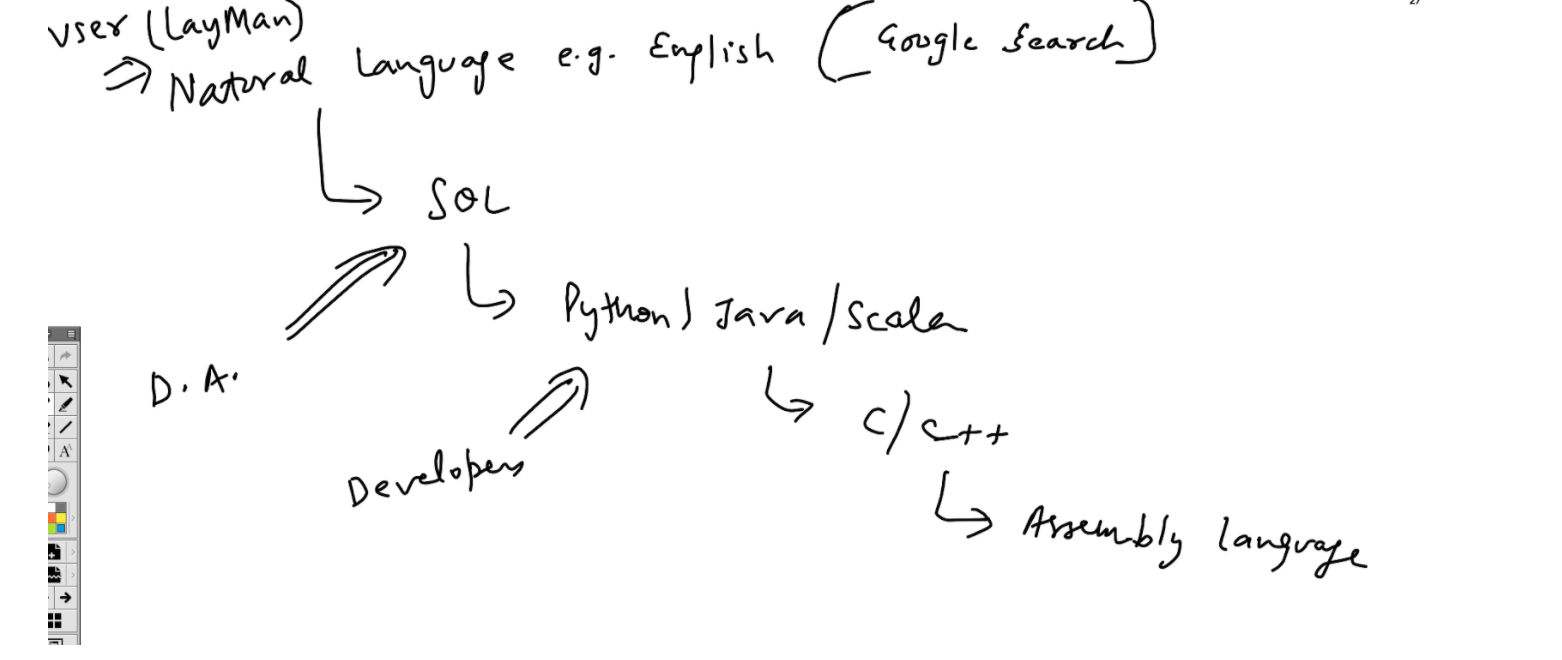 User (LayMan)
⇒ Natural Language e.g. English (Google Search)
SQL
Python / Java / Scala
D.A.
C/C++
Developers
Assembly language